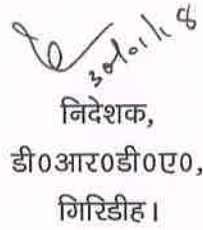 30/01/18
निदेशक,
डी0आर0डी0ए0,
गिरिडीह।